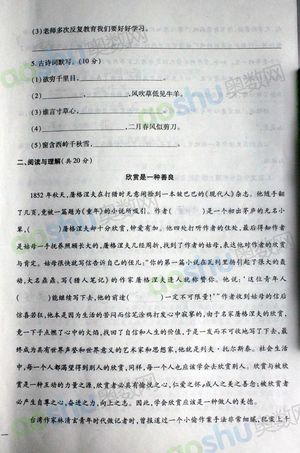 (3)老师多次反复教育我们要好好学习。
5.古诗词默写。(10分)
(1)欲穷千里目,
(2) ,风吹草低见牛羊。
(3)谁言寸草心,
(4) ,二月春风似剪刀。
(5)窗含西岭千秋雪,
二、阅读与理解(共20分)
欣赏是一种善良
1852年秋天,屠格涅夫在打猎时无意间捡到一本皱巴巴的《现代人》杂志。他随手翻
了几页,竟被一篇题为《童年》的小说所吸引。作者( )是一个初出茅庐的无名小
辈,( )屠格涅夫却十分欣赏,钟爱有加。他四处打听作者的住处,最后得知作者
是由姑母一手抚养照顾长大的。屠格涅夫几经周折,找到了作者的姑母,表达他对作者的欣赏
与肯定。姑母很快就写信告诉自己的侄儿:“你的第一篇小说在瓦列里扬引起了很大的轰
动,大名鼎鼎、写《猎人笔记》的作家屠格涅夫逢人就称赞你。他说:‘这位青年人
( )能继续写下去,他的前途( )一定不可限量!’”作者收到姑母的信后
惊喜若狂,他本是因为生活的苦闷而信笔涂鸦打发心中寂寥的,由于名家屠格涅夫的欣赏,
竟一下子点燃了心中的火焰,找回了自信和人生的价值,于是一发而不可收地写了下去,最
终成为具有世界声誉和世界意义的艺术家和思想家,他就是列夫·托尔斯泰。社会生活
中,每一个人都渴望得到别人的欣赏,同样,每一个人也应该学会去欣赏别人。欣赏与被欣
赏是一种互动的力量之源,欣赏者必具有愉悦之心,仁爱之怀,成人之美之善念;被欣赏者
必产生自尊之心,奋进之力,向上之志。因此,学会欣赏应该是一种做人的美德。
台湾作家林清玄青年时代做记者时,曾报道过一个小偷作案手法非常细腻,犯案上千